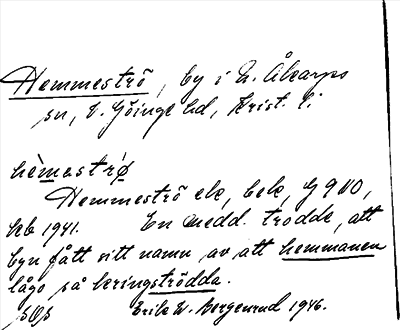 Hemmeströ, by i N. Åkarps
sn, V. Göinge hd, Krist. l.
hèmastrǿ
Hemmeströ ek, bek, G 9110,
hb 1941. En medd. trodde, att
byn fått sitt namn av att hemmanen
lågo så kringströdda.
Erik W. Bergenrud 1946.